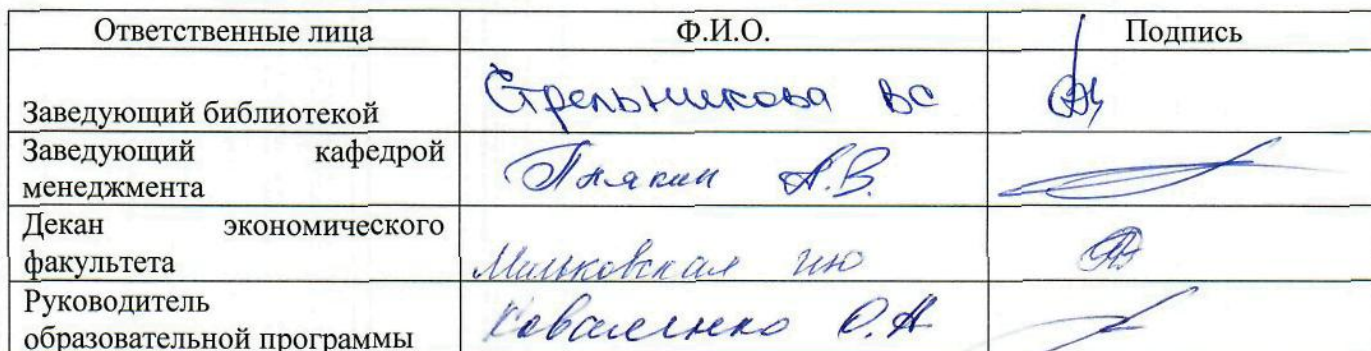 Ответственные лица Ф.И.О. Подпись
Заведующий библиотекой Стрельникова ВС
Заведующий кафедрой
менеджмента Пнякин А.В.
Декан экономического
факультета Мильковская ИЮ
Руководитель
образовательной программы Коваленко О.Н